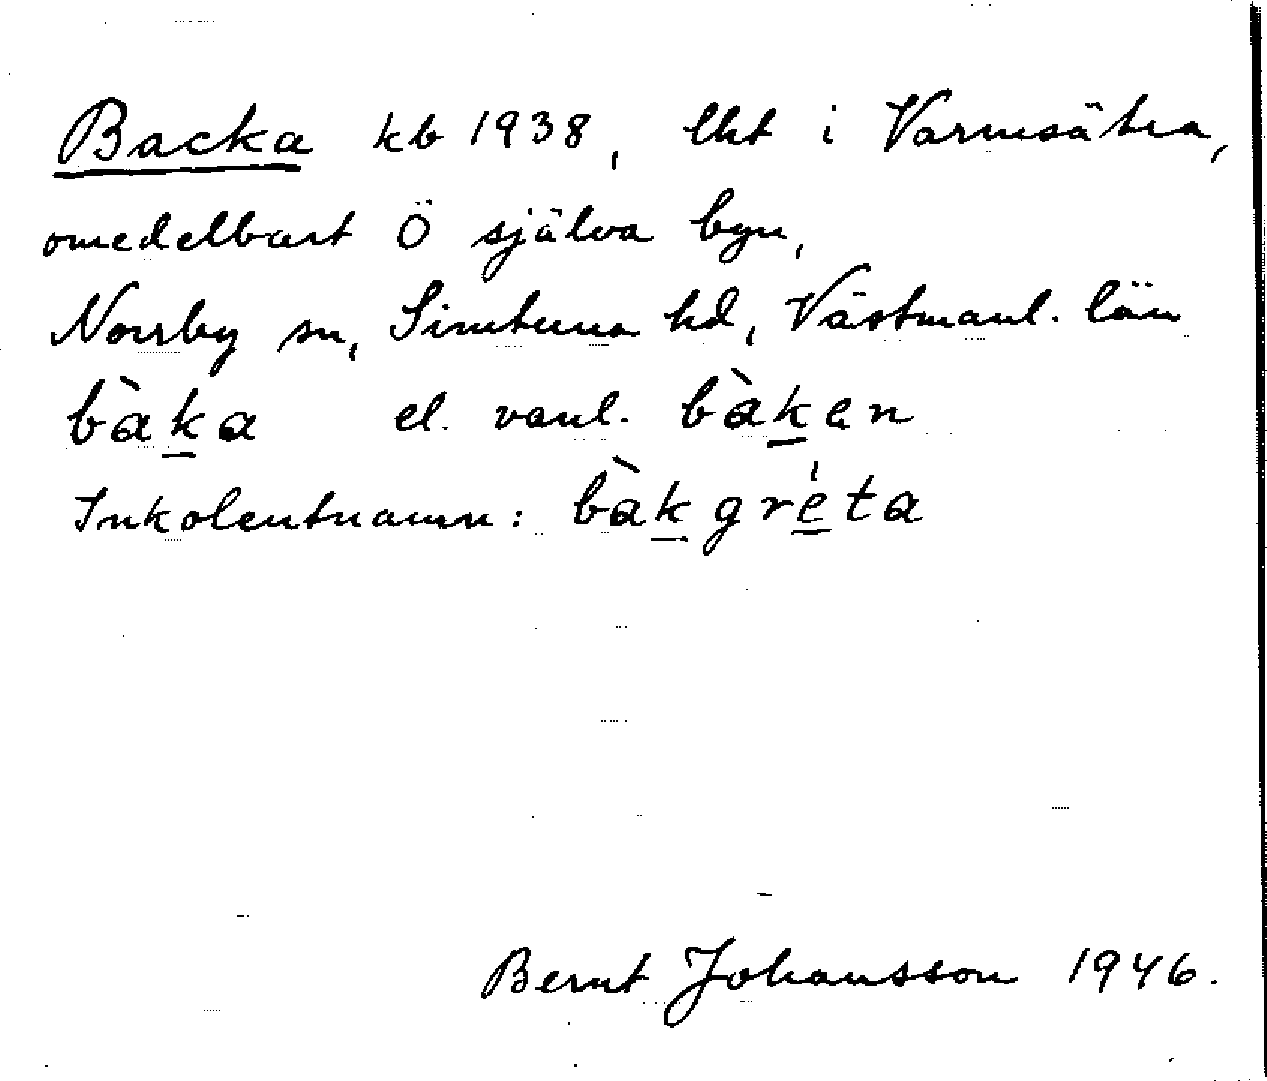 Backa kb 1938, lht i Varmsätra,
omedelbart Ö själva byn,
Norrby sn, Simtuna hd, Västmanl. län
bàka el. vanl. bàken
Inkolentnamn: bàkgréta
Bernt Johansson 1946.